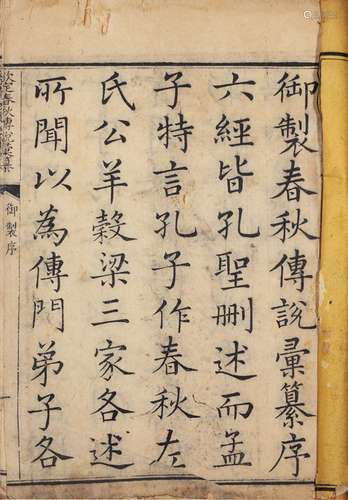 御製春秋傳說彙纂序
六經皆孔聖刪述而孟
子特言孔子作春秋左
氏公羊穀梁三家各述
所聞以為傳門弟子各
欽定春秋傳說彙纂
御製序